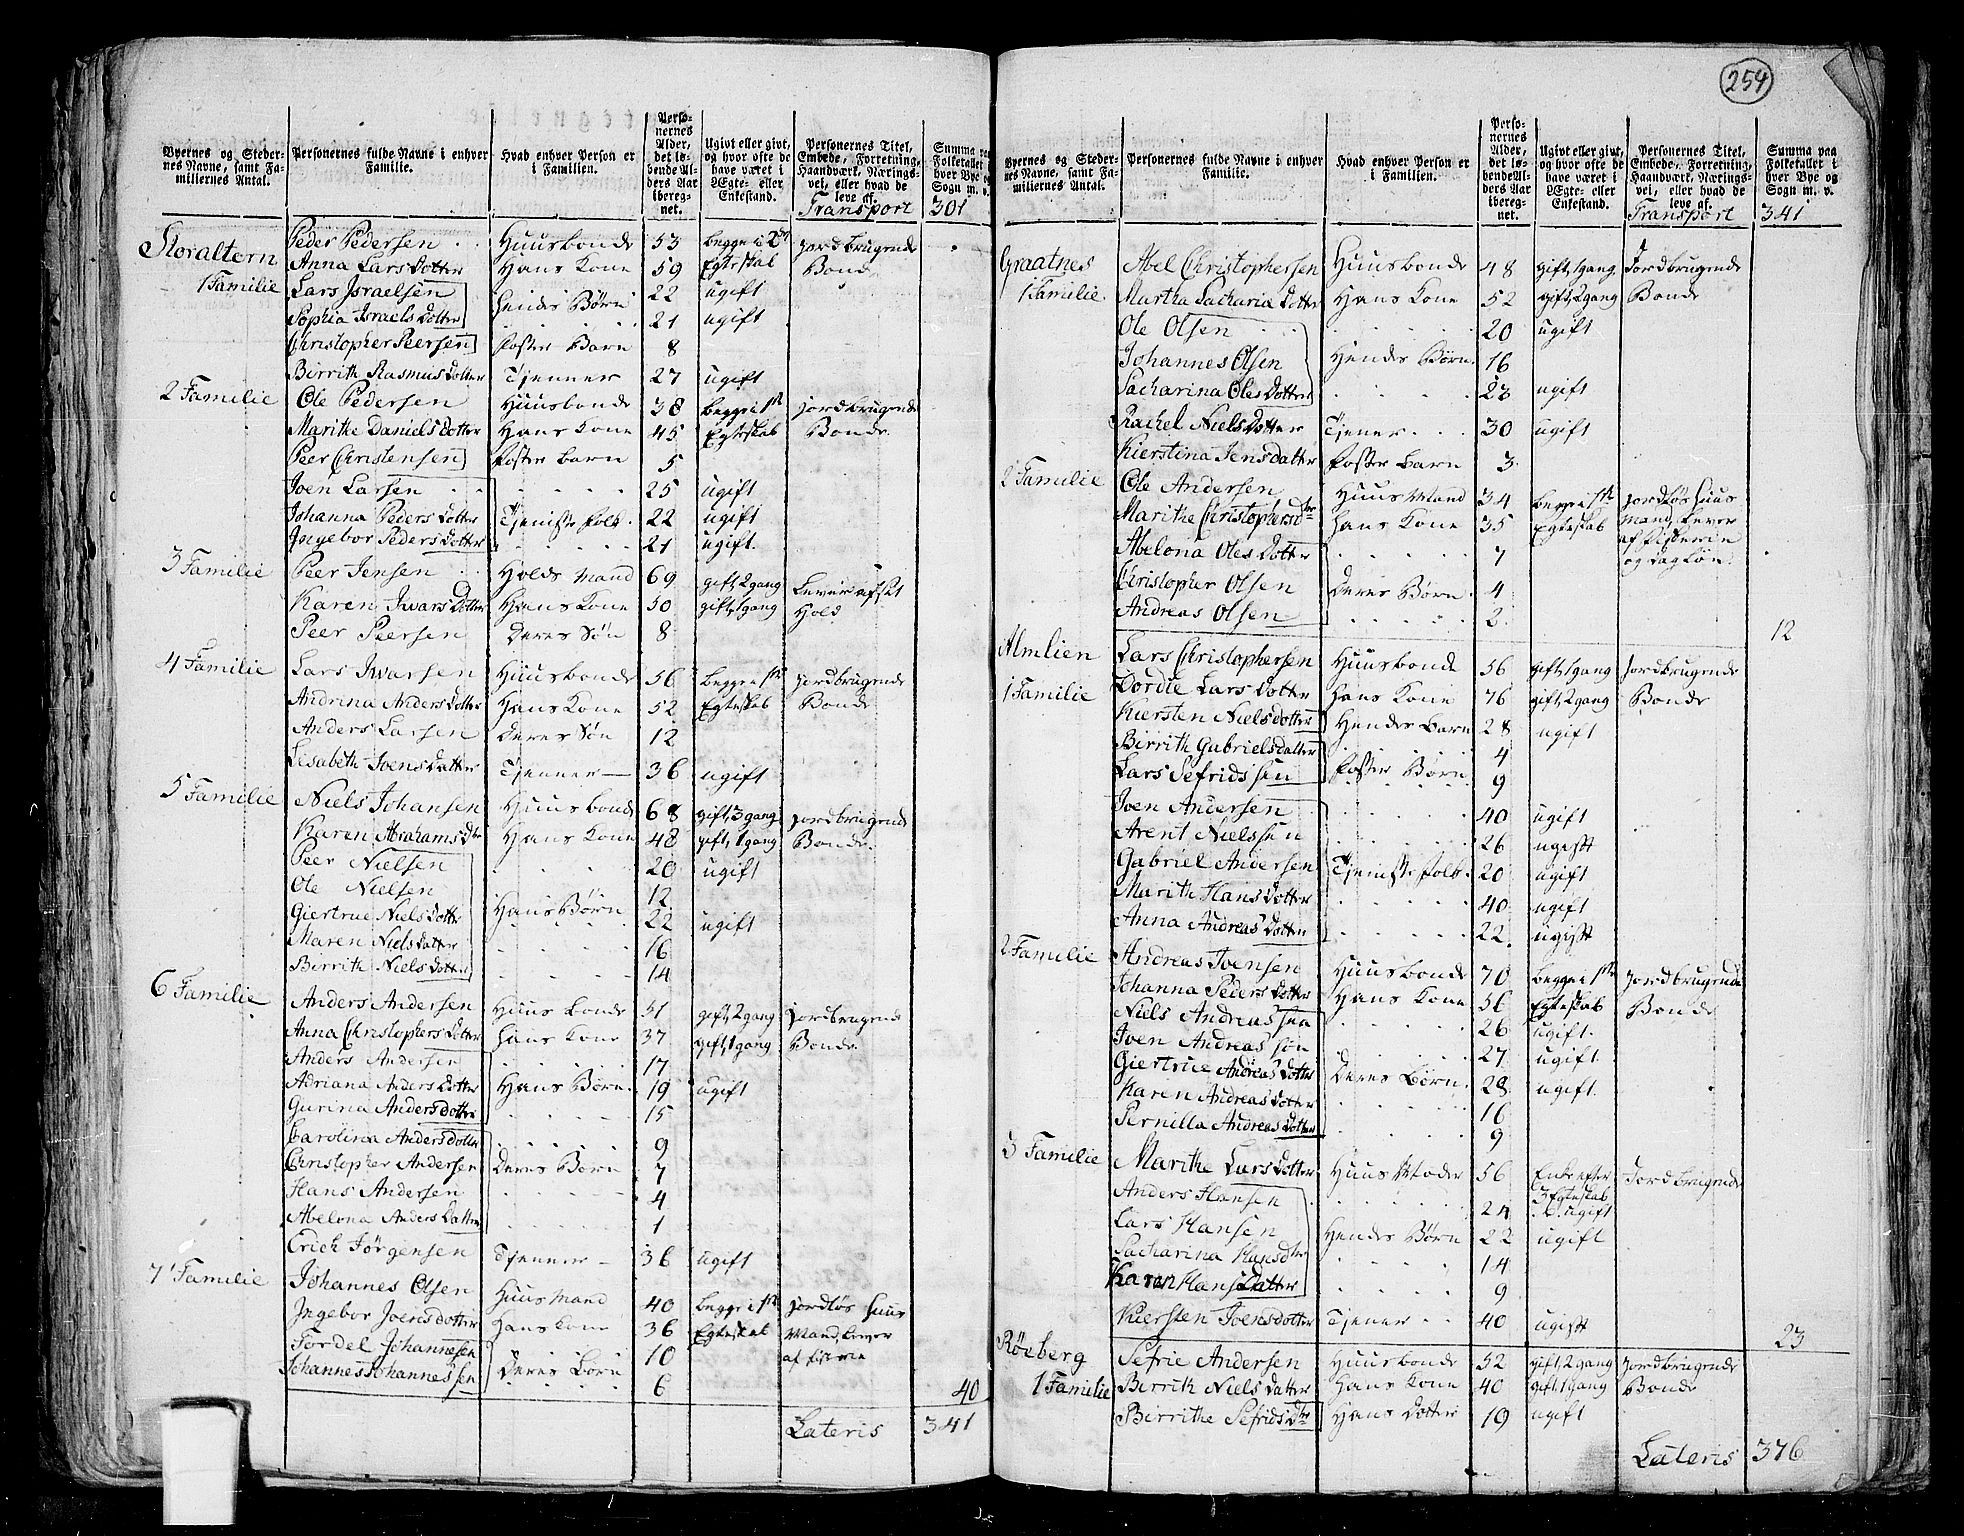 254
Byernes og Stedernes Navne, samt Familiernes Antal.
Personernes fulde Navne i enhver Familie.
Hvad enhver Person er i Familien.
Personernes Alder, det løbende Alders Aar iberegnet.
Ugivt eller givt, og hvor ofte de have været i Ægte- eller Enkestand.
Personernes Titel, Embede, Forretning, Haandværk, Næringsvei, eller hvad de leve af.
Summa paa Folketallet i hver Bye og Sogn m. v.
Transport 301
Storaltern Peder Pedersen Huusbonde 53 begge i 2det jordbrugende
Anna Larsdotter Hans Kone 59 Egteskab Bonde
1 Familie Lars Israelsen 22 ugift
Sophia Israelsdotter Hendes Børn 21 ugift
Christopher Peersen Foster Barn 8
Birrith Rasmusdotter Tjenner 27 ugift
2 Familie Ole Pedersen Huusbonde 38 begge i 1ste jordbrugende
Marithe Danielsdotter Hans Kone 45 Egteskab Bonde
Peer Christensen Foster barn 5
Joen Larsen 25 ugift
Johanna Pedersdotter Tjeniste folk 22 ugift
Ingebor Pedersdotter 21 ugift
3 Familie Peer Jensen Holds Mand 69 gift, 2 gang Lever af sit
Karen Iwarsdotter Hans Kone 50 gift, 1 gang Hold
Peer Peersen Deres Søn 8
4 Familie Lars Iwarsen Huusbonde 56 begge i 1ste jordbrugende
Andrina Andersdotter Hans Kone 52 Egteskab Bonde
Anders Larsen Deres Søn 12
Lisabeth Joensdatter Tjenner 36 ugift
5 Familie Niels Johansen Huusbonde 68 gift, 3 gang jordbrugende
Karen Abrahamsdtr Hans Kone 48 gift, 1 gang Bonde.
Peer Nielsen 20 ugift
Ole Nielsen 12
Giertrue Nielsdotter Hans Børn 22 ugift
Maren Nielsdatter 16
Birrith Nielsdotter 14
6 Familie Anders Andersen Huusbonde 51 gift, 2 gang jordbrugende
Anna Christophersdotter Hans Kone 37 gift, 1 gang Bonde.
Anders Andersen 17
Adriana Andersdotter Hans Børn 19 ugift
Gurina Andersdotter 15
Carolina Andersdotter 9
Christopher Andersen Deres Børn 7
Hans Andersen 4
Abelona Andersdatter 1
Erich Jørgensen Tjenner 36 ugift
7 Familie Johannes Olsen Huusmand 40 begge i 1ste jordløs Huus
Ingebor Joensdotter Hans Kone 36 Egteskab Mand, Lever
Tordel Johannesen 10 af fiskerie
Johannes Johannessen Deres Børn 6
40
Lateris 341
Byernes og Stedernes Navne, samt Familiernes Antal.
Personernes fulde Navne i enhver Familie.
Hvad enhver Person er i Familien.
Personernes Alder, det løbende Alders Aar iberegnet.
Ugivt eller givt, og hvor ofte de have været i Ægte- eller Enkestand.
Personernes Titel, Embede, Forretning, Haandværk, Næringsvei, eller hvad de leve af.
Summa paa Folketallet i hver Bye og Sogn m. v.
Transport 341
Graatnes Abel Christophersen Huusbonde 48 gift, 1 gang Jordbrugende
1 Familie. Martha Sacharia Dotter Hans Kone 52 gift, 2 gang Bonde
Ole Olsen 20 ugift
Johannes Olsen Hendes Børn 16
Sacharina Olesdotter 23 ugift
Rachel Nielsdotter Tjener 30 ugift
Kierstina Jensdatter Foster barn 3
2 Familie Ole Andersen Huusmand 34 begge i 1ste jordløs Huus
Marithe Christophersdtr Hans Kone 35 Egteskab Mand, Lever
Abelona Olesdotter 7 af Fiskerie
Christopher Olsen Deres Børn 4 og dagløn
Andreas Olsen 2
12
Almlien Lars Christophersen Huusbonde 56 gift, 1 gang jordbrugende
1 Familie Dordie Larsdotter Hans Kone 76 gift, 2 gang Bonde
Kiersten Nielsdotter Hendes Barn 28 ugift
Birrith Gabrielsdatter 4
Lars Sefridssen Foster Børn 9
Joen Andersen 40 ugift
Arent Nielssen 26 ugift
Gabriel Andersen Tjeniste folk 20 ugift
Marith Hansdotter 40 ugift
Anna Andreasdotter 22 ugift
2 Familie Andreas Joensen Huusbonde 70 begge i 1ste jordbrugende
Johanna Pedersdotter Hans Kone 56 Egteskab Bonde
Niels Andreassen 26 ugift
Joen Andreassøn 27 ugift
Giertrue Andreasdotter Deres børn 28 ugift
Karen Andreasdotter 16
Pernilla Andreasdotter 9
3 Familie Marithe Larsdotter Huus Moder 56 Enke efter Jordbrugende
3 Egteskab
Anders Hansen 24 ugift
Lars Hansen Hendes Børn 22 ugift
Sacharina Hansdtr 14
Karen Hansdatter 9
Kiersten Joensdotter Tjener 40 ugift
23
Røeberg Sefrie Andersen Huusbonde 52 gift, 2 gang jordbrugende
1 Familie Birrith Nielsdatter Hans Kone 40 gift, 1 gang Bonde
Birrithe Sefridsdtr Hans Dotter 19 ugift
Lateris 376